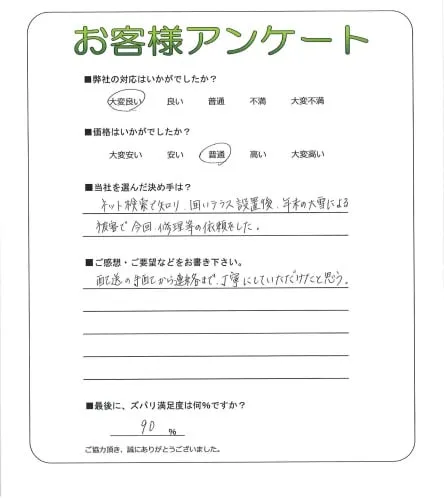 お客様アンケート
■弊社の対応はいかがでしたか?
大変良い 良い 普通 不満 大変不満
■価格はいかがでしたか?
大変安い 安い 普通 高い 大変高い
■当社を選んだ決め手は?
ネット検索で知り、囲いテラス設置後、年末の大雪による
被害で今回修理等の依頼をした。
■ご感想・ご要望などをお書き下さい。
配送の手配から連絡まで、丁寧にしていただけたと思う。
■最後に、ズバリ満足度は何%ですか?
90 %
ご協力頂き、誠にありがとうございました。